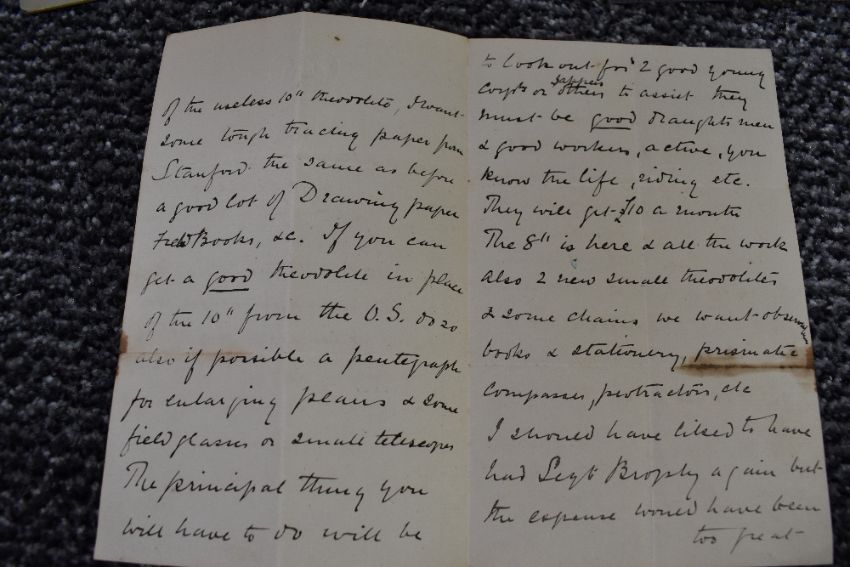 of the useless 10" theodolite, I want
some tough tracing paper from
Stanford the same as before
a good lot of Drawing paper
Field Books, &c. If you can
get a good theodolite in place
of the 10" from the O.S. do so
also if possible a pentegraph
for enlarging plans & some
field glasses or small telescopes
The principal thing you
will have to do will be
to look out for 2 good young
Corpls or sappers others to assist they
must be good draughtsmen
& good workers, active, you
know the life, riding etc.
They will get £10 a month
The 8" is here & all the work
also 2 new small theodolites
& some chains we want observation
books & stationery, prismatic
compasses, protractors, etc
I should have liked to have
had Sergt Brophy again but
the expense would have been
too great